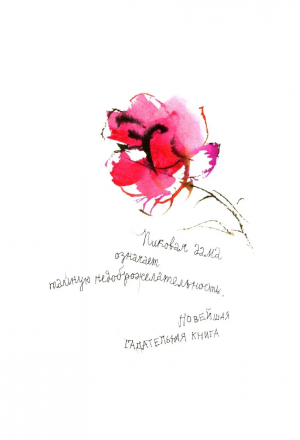 Пиковая дама
означает
тайную недоброжелательность.
Новейшая
гадательная книга